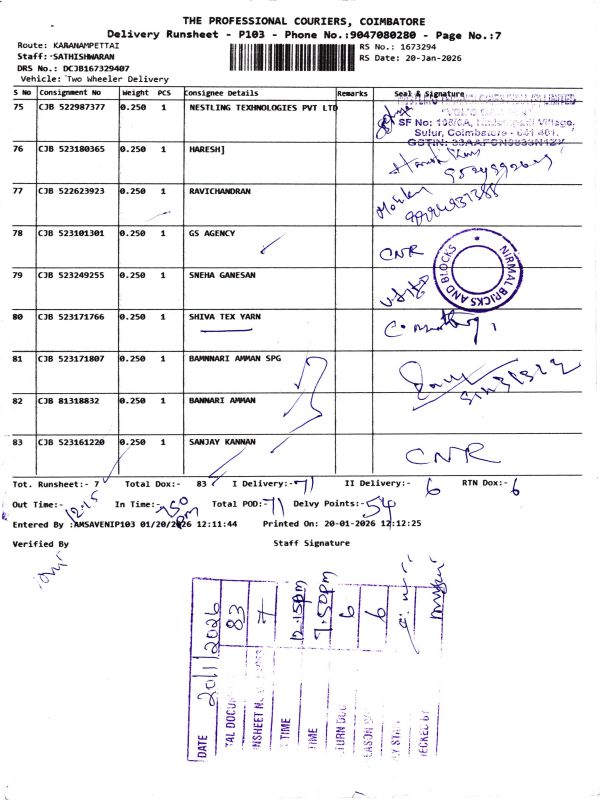 THE PROFESSIONAL COURIERS, COIMBATORE
Delivery Runsheet - P103 - Phone No.:9047080280 - Page No.:7
Route: KARANAMPETTAI
RS No.: 1673294
Staff: SATHISHWARAN
RS Date: 20-Jan-2026
DRS No.: DCJB167329407
Vehicle: Two Wheeler Delivery
S No Consignment No Weight PCS Consignee Details Remarks Seal & Signature
75 CJB 522987377 0.250 1 NESTLING TEXHNOLOGIES PVT LTD
SF No: Village,
Sulur, Coimbatore - 641
GSTIN:
76 CJB 523180365 0.250 1 HARESH]
77 CJB 522623923 0.250 1 RAVICHANDRAN
78 CJB 523101301 0.250 1 GS AGENCY CNR
NIRMAL BRICKS AND BLOCKS
79 CJB 523249255 0.250 1 SNEHA GANESAN
80 CJB 523171766 0.250 1 SHIVA TEX YARN
81 CJB 523171807 0.250 1 BAMNNARI AMMAN SPG
82 CJB 81318832 0.250 1 BANNARI AMMAN
83 CJB 523161220 0.250 1 SANJAY KANNAN CNR
Tot. Runsheet:- 7 Total Dox:- 83 I Delivery:- 71 II Delivery:- 6 RTN Dox:- 6
Out Time:- 12.15 In Time:- 7.50 pm Total POD:- 71 Delvy Points:- 54
Entered By :AMSAVENIP103 01/20/2026 12:11:44 Printed On: 20-01-2026 12:12:25
Verified By Staff Signature
DATE 20/1/2026
TAL DOCUM 83
NSHEET N 7
TIME 12.15pm
IME 7.50pm
TURN DOC 6
EASON 6
Y STA
ECKED BY